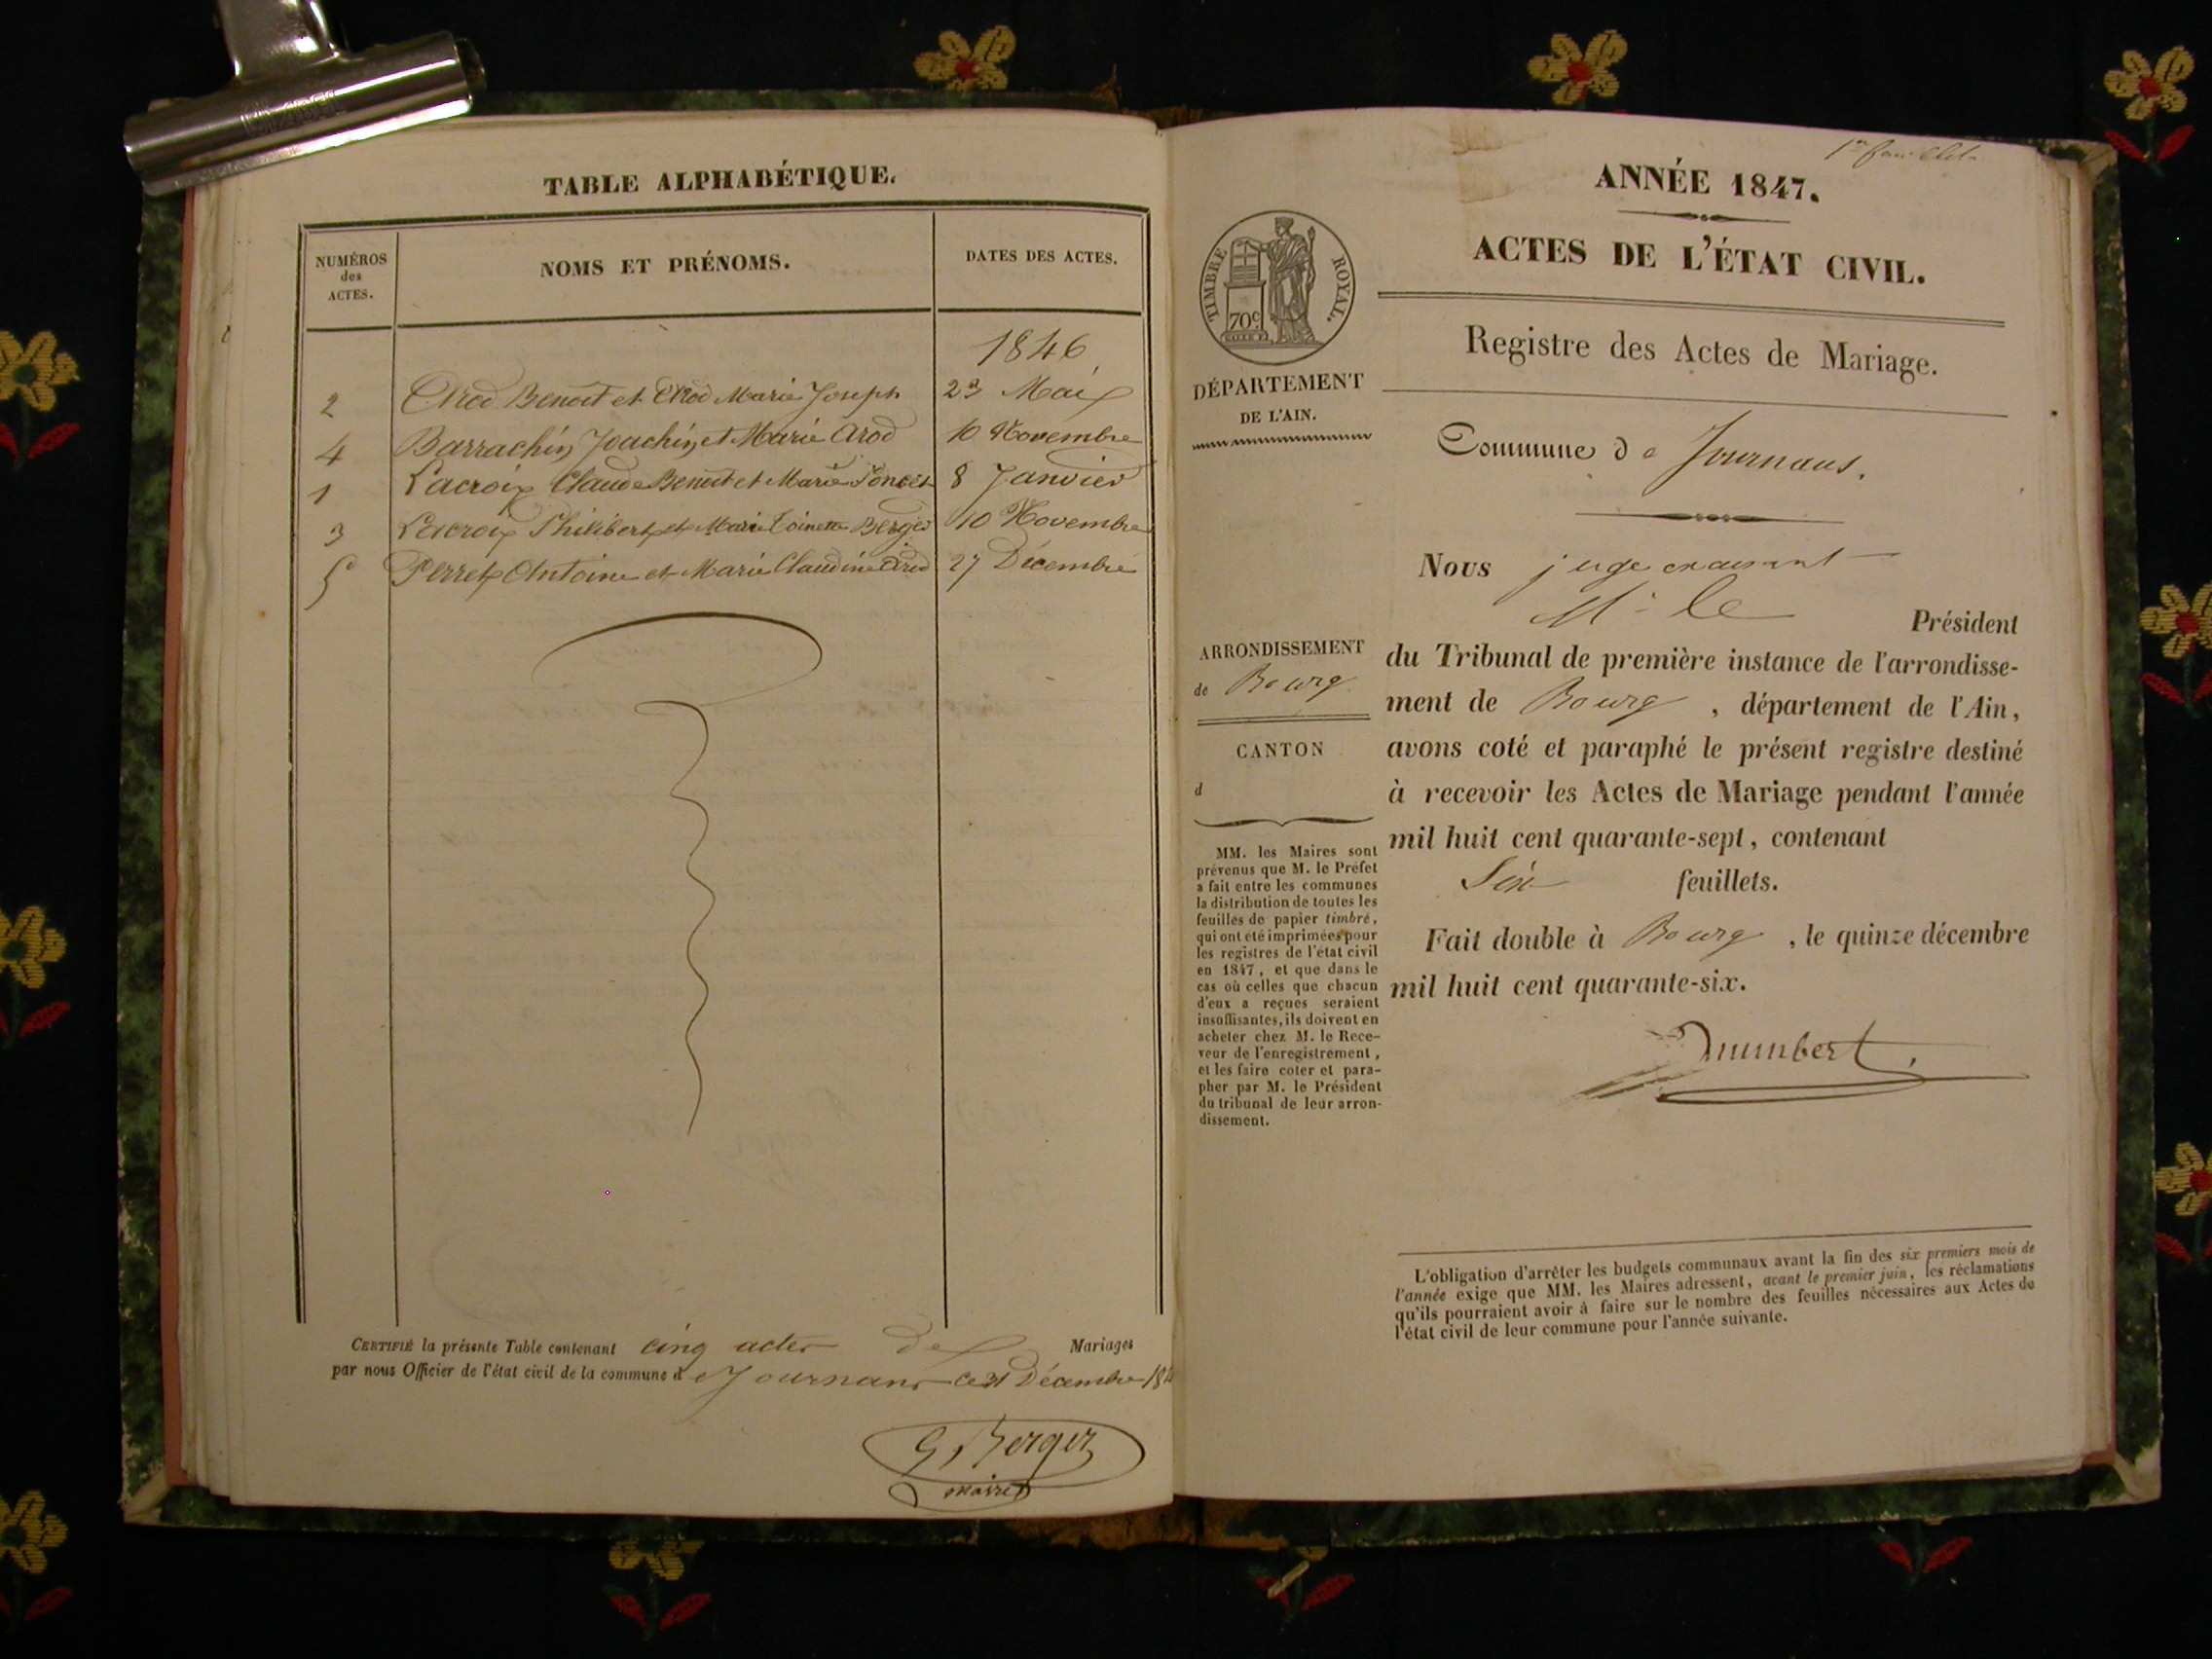 TABLE ALPHABÉTIQUE.
NUMÉROS
des
ACTES.
NOMS ET PRÉNOMS.
DATES DES ACTES.
1846
2 Arod Benoit et Arod Marie Joseph 23 Mai
4 Barrachin Joachin et Marie Arod 10 Novembre
1 Lacroix Claude Benoit et Marie Poncet 8 Janvier
3 Lacroix Philibert et Marie Toinette Berger 10 Novembre
5 Perret Antoine et Marie Claudine Arod 27 Décembre
CERTIFIÉ la présente Table contenant cinq actes de Mariages
par nous Officier de l'état civil de la commune d e Journans ce 31 Décembre 184
G. Berger
maire
1er feuillet
ANNÉE 1847.
ACTES DE L'ÉTAT CIVIL.
TIMBRE ROYAL.
70c
DÉPARTEMENT
DE L'AIN.
Registre des Actes de Mariage.
Commune de Journans.
Nous juge
Mr le
Président
ARRONDISSEMENT
de Bourg
CANTON
d
du Tribunal de première instance de l'arrondisse-
ment de Bourg , département de l'Ain,
avons coté et paraphé le présent registre destiné
à recevoir les Actes de Mariage pendant l'année
mil huit cent quarante-sept, contenant
Six feuillets.
Fait double à Bourg , le quinze décembre
mil huit cent quarante-six.
MM. les Maires sont
prévenus que M. le Préfet
a fait entre les communes
la distribution de toutes les
feuilles de papier timbré,
qui ont été imprimées pour
les registres de l'état civil
en 1847, et que dans le
cas où celles que chacun
d'eux a reçues seraient
insuffisantes, ils doivent en
acheter chez M. le Rece-
veur de l'enregistrement,
et les faire coter et para-
pher par M. le Président
du tribunal de leur arron-
dissement.
L'obligation d'arrêter les budgets communaux avant la fin des six premiers mois de
l'année exige que MM. les Maires adressent, avant le premier juin, les réclamations
qu'ils pourraient avoir à faire sur le nombre des feuilles nécessaires aux Actes de
l'état civil de leur commune pour l'année suivante.